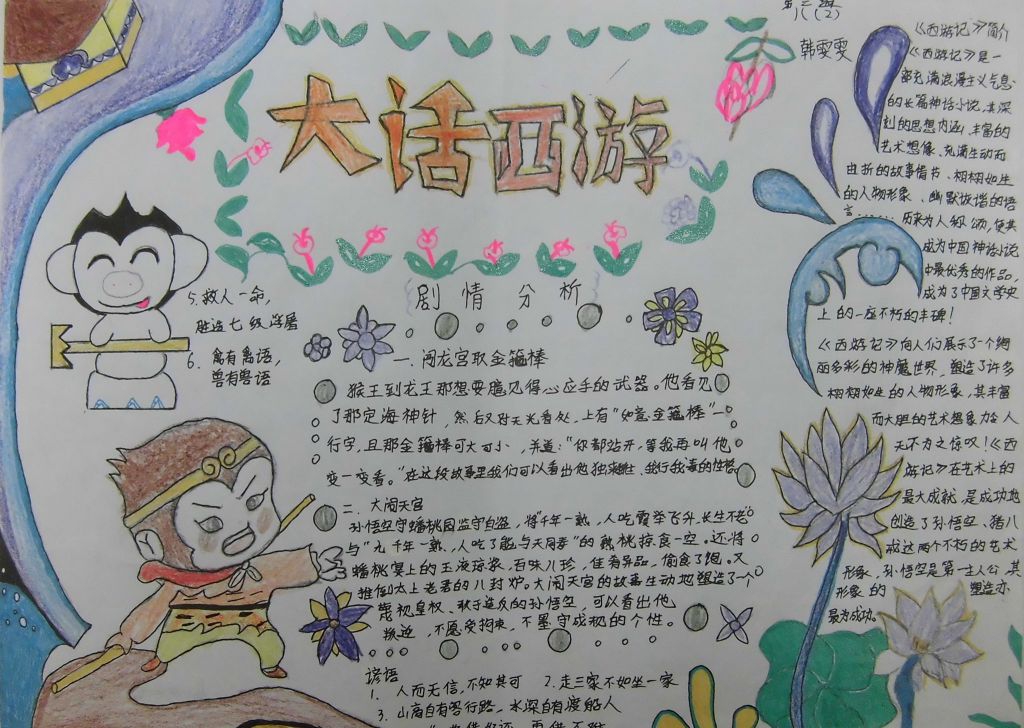 大话西游
韩雯雯
《西游记》简介
《西游记》是一
部充满浪漫主义气息
的长篇神话小说,其深
刻的思想内涵、丰富的
艺术想像、充满生动而
曲折的故事情节、栩栩如生
的人物形象、幽默诙谐的语
言......历来为人称颂,使其
成为中国神话小说
中最优秀的作品,
成为了中国文学史
上的一座不朽的丰碑!
《西游记》向人们展示了一个绚
丽多彩的神魔世界,塑造了许多
栩栩如生的人物形象,其丰富
而大胆的艺术想象力令人
无不为之惊叹!《西
游记》在艺术上的
最大成就,是成功地
创造了孙悟空、猪八
戒这两个不朽的艺术
形象,孙悟空是第一主人公,其
形象的塑造亦
最为成功。
5.救人一命,
胜造七级浮屠
6.禽有禽语,
兽有兽语
剧情分析
一.闹龙宫取金箍棒
猴王到龙王那想要
得心应手的武器。他看见
了那定海神针,然后又对天光看处,上有“如意金箍棒”一
行字,且那金箍棒可大可小,并道:“你都站开,等我再叫他
变一变看。”在这段故事里我们可以看出他
二.大闹天宫
孙悟空守蟠桃园监守自盗,将“千年一熟,人吃霞举飞升,长生不老”
与“九千年一熟,人吃了能与天同寿”的熟桃掠食一空。还将
蟠桃宴上的玉液琼浆,百味八珍,佳肴异品,偷食了饱。又
推倒太上老君的八封炉。大闹天宫的故事生动地塑造了一个
蔑视皇权、敢于造反的孙悟空,可以看出他
叛逆,不愿受拘束,不墨守成规的个性。
谚语
1.人而无信,不知其可 2.走三家不如坐一家
3.山高自有客行路,水深自有渡船人